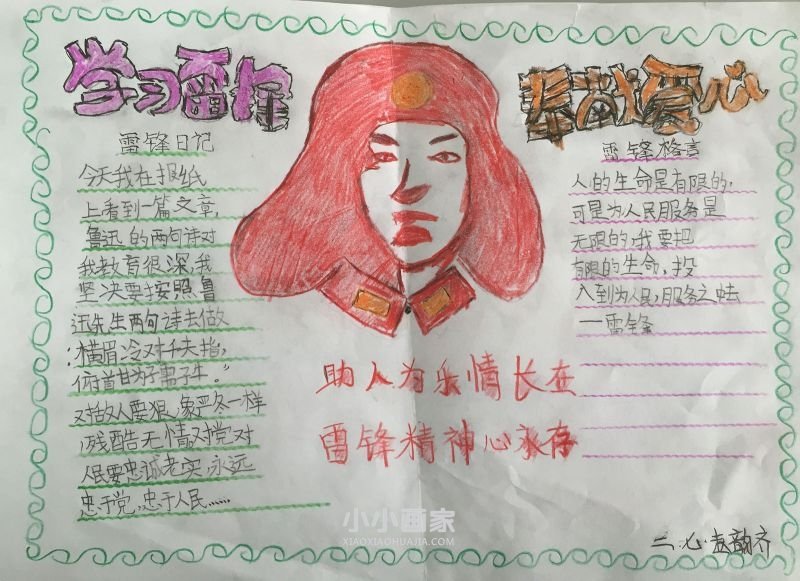 学习雷锋
奉献爱心
雷锋日记
今天我在报纸
上看到一篇文章,
鲁迅的两句诗对
我教育很深,我
坚决要按照鲁
迅先生两句诗去做
:"横眉冷对千夫指,
俯首甘为孺子牛。"
对敌人要狠,象严冬一样
残酷无情对党对
人民要忠诚老实,永远
忠于党,忠于人民……
雷锋格言
人的生命是有限的,
可是为人民服务是
无限的,我要把
有限的生命,投
入到为人民服务之中去
——雷锋
助人为乐情长在
雷锋精神心永存
小小画家
XIAOXIAOHUAJIA.COM
二.心.赵韵齐